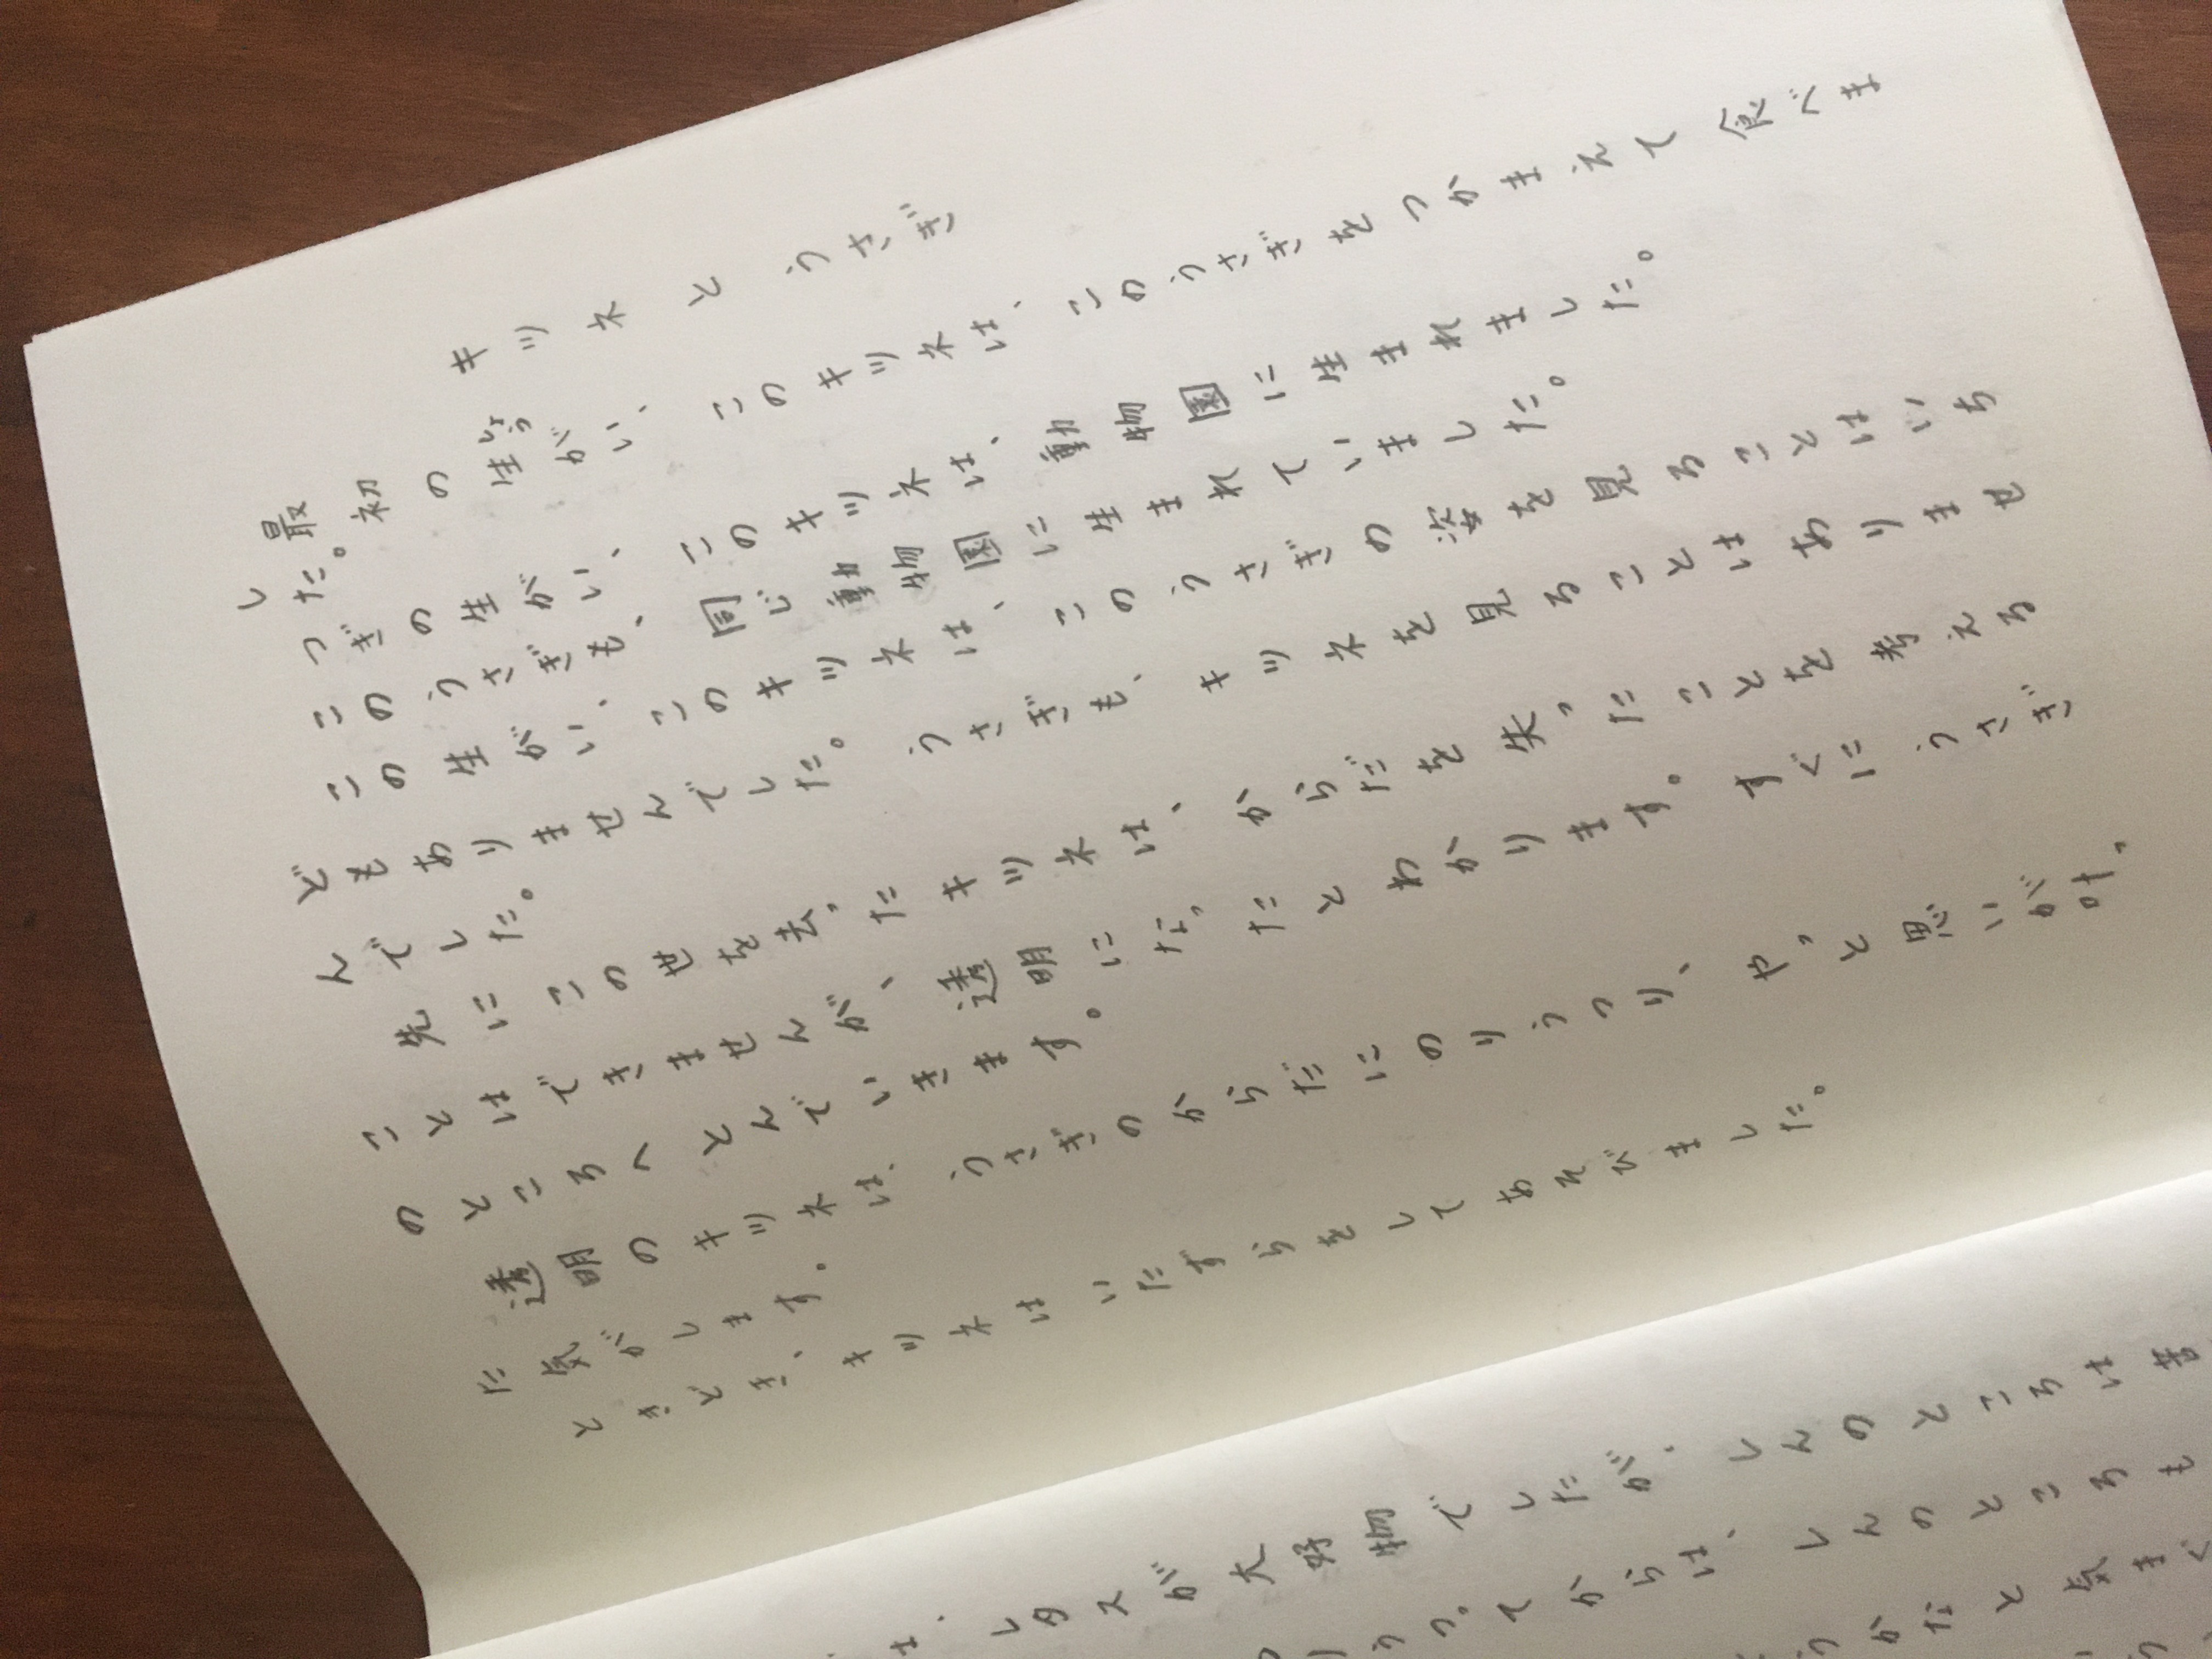 キツネとうさぎ
しょう
最初の生がい、このキツネは、このうさぎをつかまえて食べま
した。
つぎの生がい、このキツネは、動物園に生まれました。
このうさぎも、同じ動物園に生まれていました。
この生がい、このキツネは、このうさぎの姿を見ることはいち
どもありませんでした。うさぎも、キツネを見ることはありませ
んでした。
先にこの世を去ったキツネは、からだを失ったことを考える
ことはできませんが、透明になったとわかります。すぐにうさぎ
のところへとんでいきます。
透明のキツネは、うさぎのからだにのりうつり、やっと思いが叶っ
た気がします。
ときどき、キツネはいたずらをしてあそびました。
は、レタスが大好物でしたが、しんのところは苦
うつってからは、しんのところも
と気まぐ